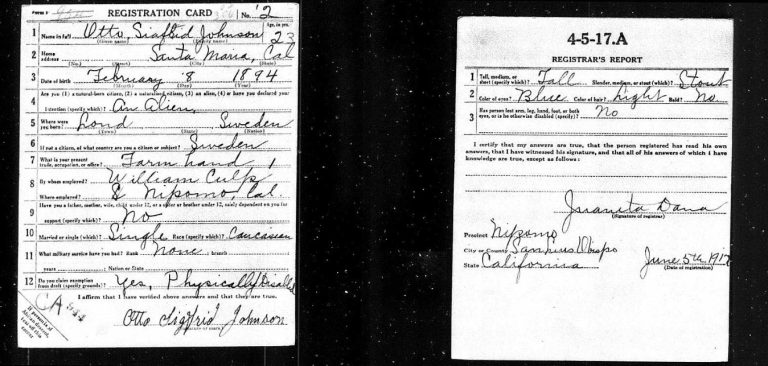 Form 1
REGISTRATION CARD
No. 2
1 Name in full Otto Siaffid Johnson Age, in yrs. 23
(Given name) (Family name)
2 Home address Santa Maria, Cal
(No.) (Street) (City) (State)
3 Date of birth February 8 1894
(Month) (Day) (Year)
4 Are you (1) a natural-born citizen, (2) a naturalized citizen, (3) an alien, (4) or have you declared your
intention (specify which)? An Alien,
5 Where were you born? Lond Sweden
(Town) (State) (Nation)
6 If not a citizen, of what country are you a citizen or subject? Sweden
7 What is your present trade, occupation, or office? Farm hand
8 By whom employed? William Culp
Where employed? Nipomo, Cal.
9 Have you a father, mother, wife, child under 12, or a sister or brother under 12, solely dependent on you for
support (specify which)? No
10 Married or single (which)? Single Race (specify which)? Caucasian
11 What military service have you had? Rank None branch
years Nation or State
12 Do you claim exemption from draft (specify grounds)? Yes, Physically Disabled
I affirm that I have verified above answers and that they are true.
Otto Sigfrid Johnson
CA
If person is of African descent, tear off this corner
4-5-17.A
REGISTRAR'S REPORT
1 Tall, medium, or short (specify which)? Tall Slender, medium, or stout (which)? Stout
2 Color of eyes? Blue Color of hair? Light Bald? No
3 Has person lost arm, leg, hand, foot, or both eyes, or is he otherwise disabled (specify)? No
I certify that my answers are true, that the person registered has read his own
answers, that I have witnessed his signature, and that all of his answers of which I have
knowledge are true, except as follows:
Juanita Dana
(Signature of registrar)
Precinct Nipomo
City or County San Luis Obispo
State California June 5th 1917
(Date of registration)